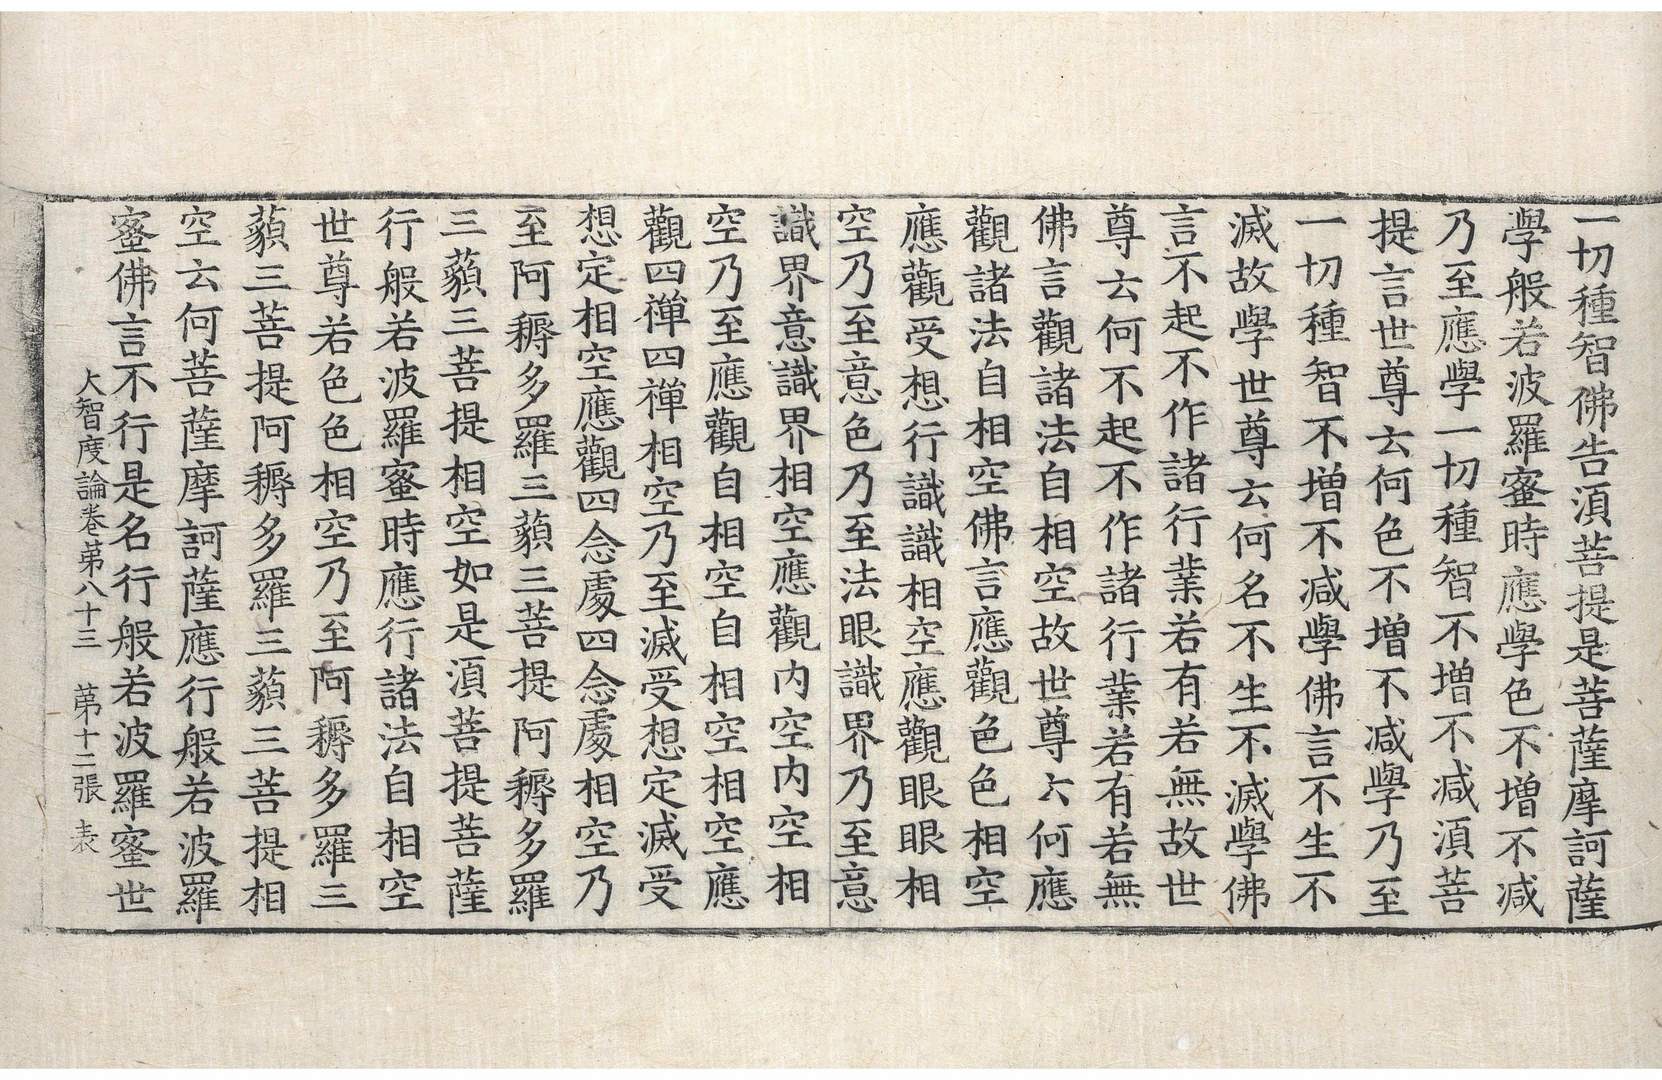 一切種智佛告湏菩提是菩薩摩訶薩
學般若波羅蜜時應學色不增不減
乃至應學一切種智不增不減湏菩
提言世尊云何色不增不減學乃至
一切種智不增不減學佛言不生不
滅故學世尊云何名不生不滅學佛
言不起不作諸行業若有若無故世
尊云何不起不作諸行業若有若無
佛言觀諸法自相空故世尊云何應
觀諸法自相空佛言應觀色色相空
應觀受想行識識相空應觀眼眼相
空乃至意色乃至法眼識界乃至意
識界意識界相空應觀內空內空相
空乃至應觀自相空自相空相空應
觀四禪四禪相空乃至滅受想定滅受
想定相空應觀四念處四念處相空乃
至阿耨多羅三藐三菩提阿耨多羅
三藐三菩提相空如是湏菩提菩薩
行般若波羅蜜時應行諸法自相空
世尊若色色相空乃至阿耨多羅三
藐三菩提阿耨多羅三藐三菩提相
空云何菩薩摩訶薩應行般若波羅
蜜佛言不行是名行般若波羅蜜世
大智度論卷第八十三　第十二張　表